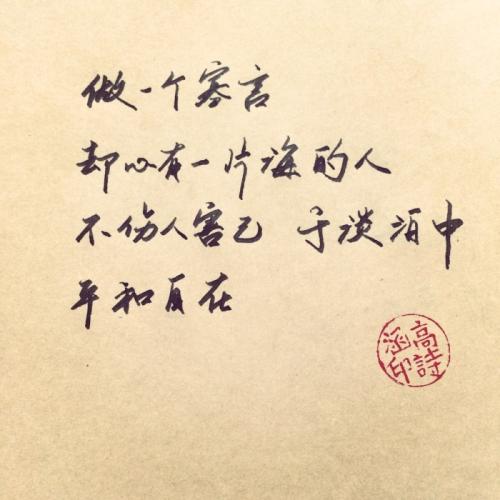 做一个寡言
却心有一片海的人
不伤人害己 于淡泊中
平和自在
高詩
涵印